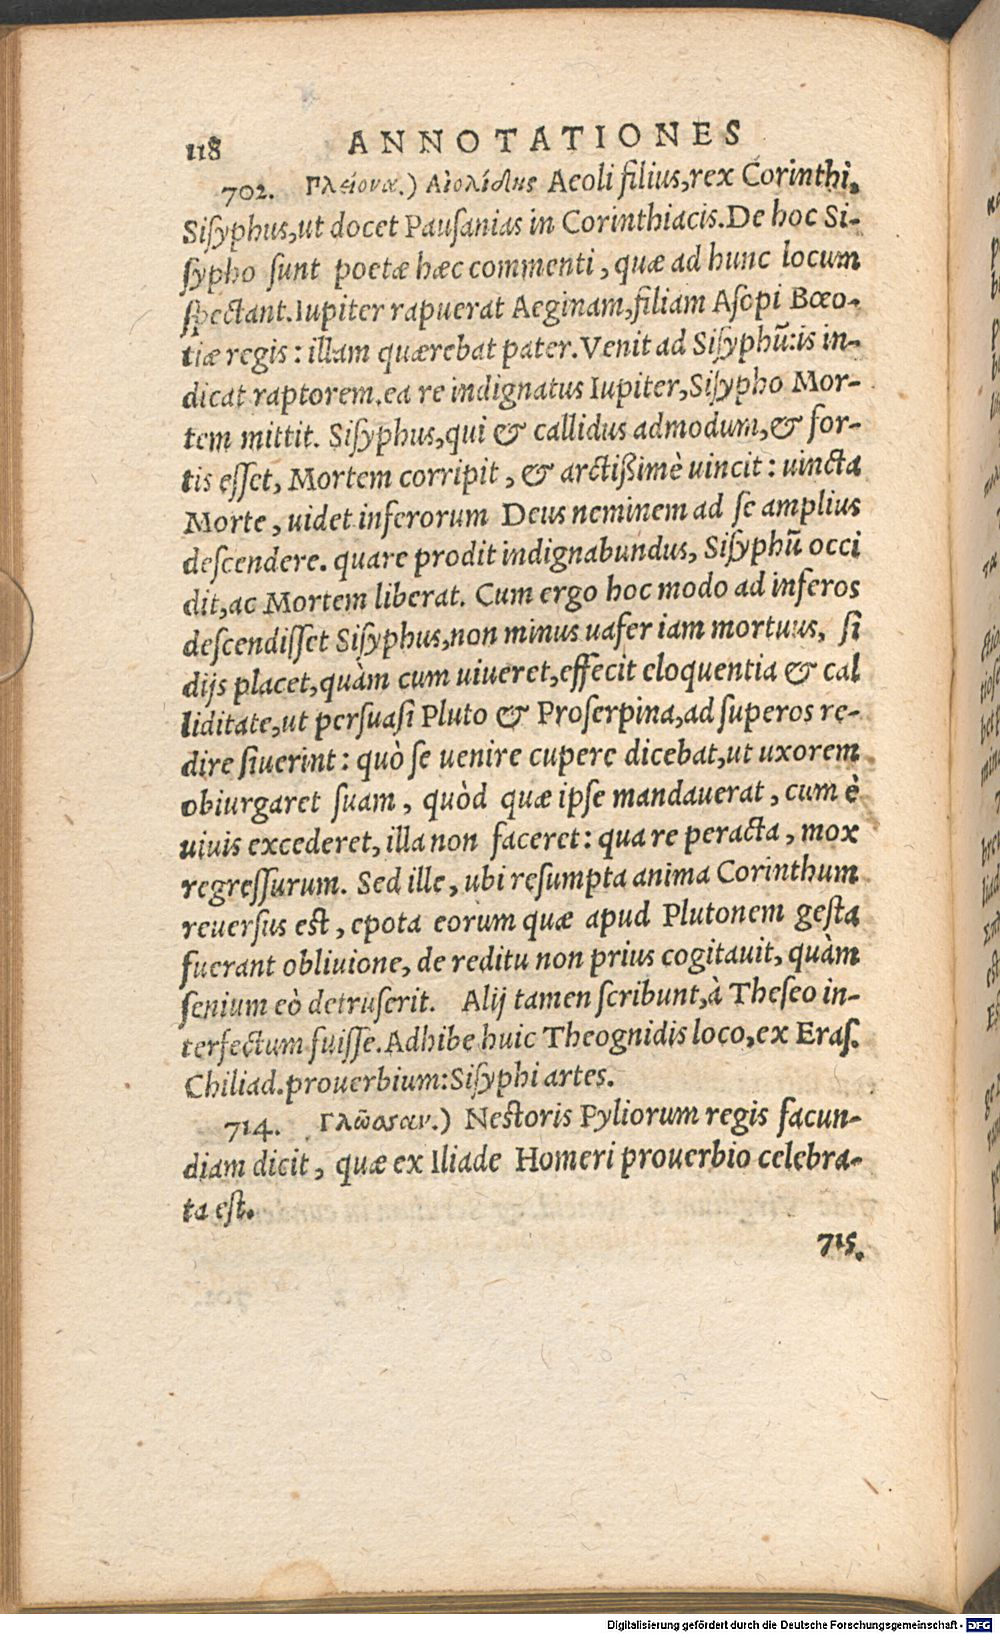 118 ANNOTATIONES
702. Πλείονα.) Αἰολίδης Aeoli filius,rex Corinthi,
Siſyphus,ut docet Pauſanias in Corinthiacis.De hoc Si-
ſypho ſunt poetæ hæc commenti, quæ ad hunc locum
ſpectant.Iupiter rapuerat Aeginam,filiam Aſopi Bœo-
tiæ regis: illam quærebat pater.Venit ad Siſyphū:is in-
dicat raptorem.ea re indignatus Iupiter,Siſypho Mor-
tem mittit. Siſyphus,qui & callidus admodum,& for-
tis eſſet, Mortem corripit, & arctißimè uincit: uincta
Morte, uidet inferorum Deus neminem ad ſe amplius
deſcendere. quare prodit indignabundus, Siſyphū occi
dit,ac Mortem liberat. Cum ergo hoc modo ad inferos
deſcendiſſet Siſyphus,non minus uafer iam mortuus, ſi
dijs placet,quàm cum uiueret,effecit eloquentia & cal
liditate,ut perſuaſi Pluto & Proſerpina,ad ſuperos re-
dire ſiuerint: quò ſe uenire cupere dicebat,ut uxorem
obiurgaret ſuam, quòd quæ ipſe mandauerat, cum è
uiuis excederet, illa non faceret: qua re peracta, mox
regreſſurum. Sed ille, ubi reſumpta anima Corinthum
reuerſus eſt, epota eorum quæ apud Plutonem geſta
fuerant obliuione, de reditu non prius cogitauit, quàm
ſenium eò detruſerit. Alij tamen ſcribunt,à Theſeo in-
terfectum fuiſſe.Adhibe huic Theognidis loco,ex Eraſ.
Chiliad.prouerbium:Siſyphi artes.
714. Γλῶσσαν.) Neſtoris Pyliorum regis facun-
diam dicit, quæ ex Iliade Homeri prouerbio celebra-
ta eſt.
715.
Digitalisierung gefördert durch die Deutsche Forschungsgemeinschaft - DFG